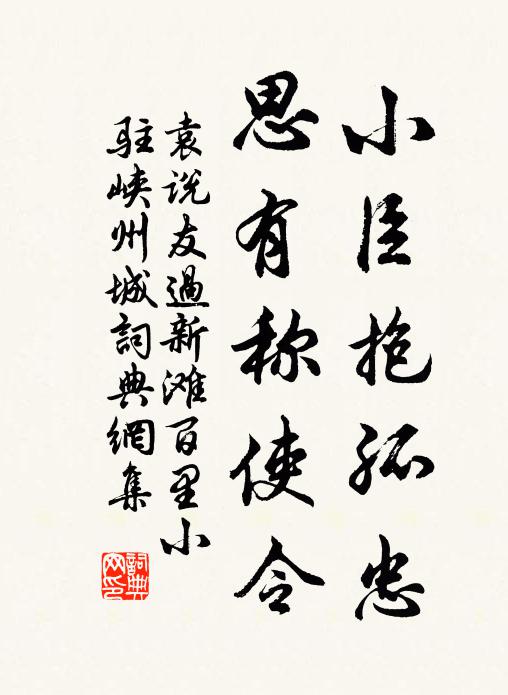 小臣抱孤忠
思有称使令
袁说友過新滩百里小
駐峡州城詞典網集
詞典
网印